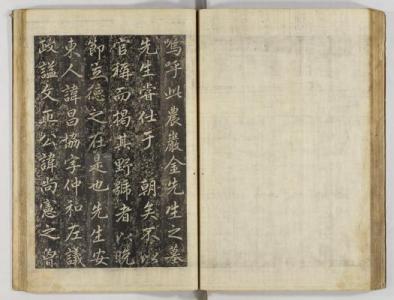 嗚呼此農巖金先生之墓
先生嘗仕于 朝矣不以
官稱而揭其野號者以晚
節立德之在是也先生安
東人諱昌協字仲和左議
政諡文正公諱尚憲之曾